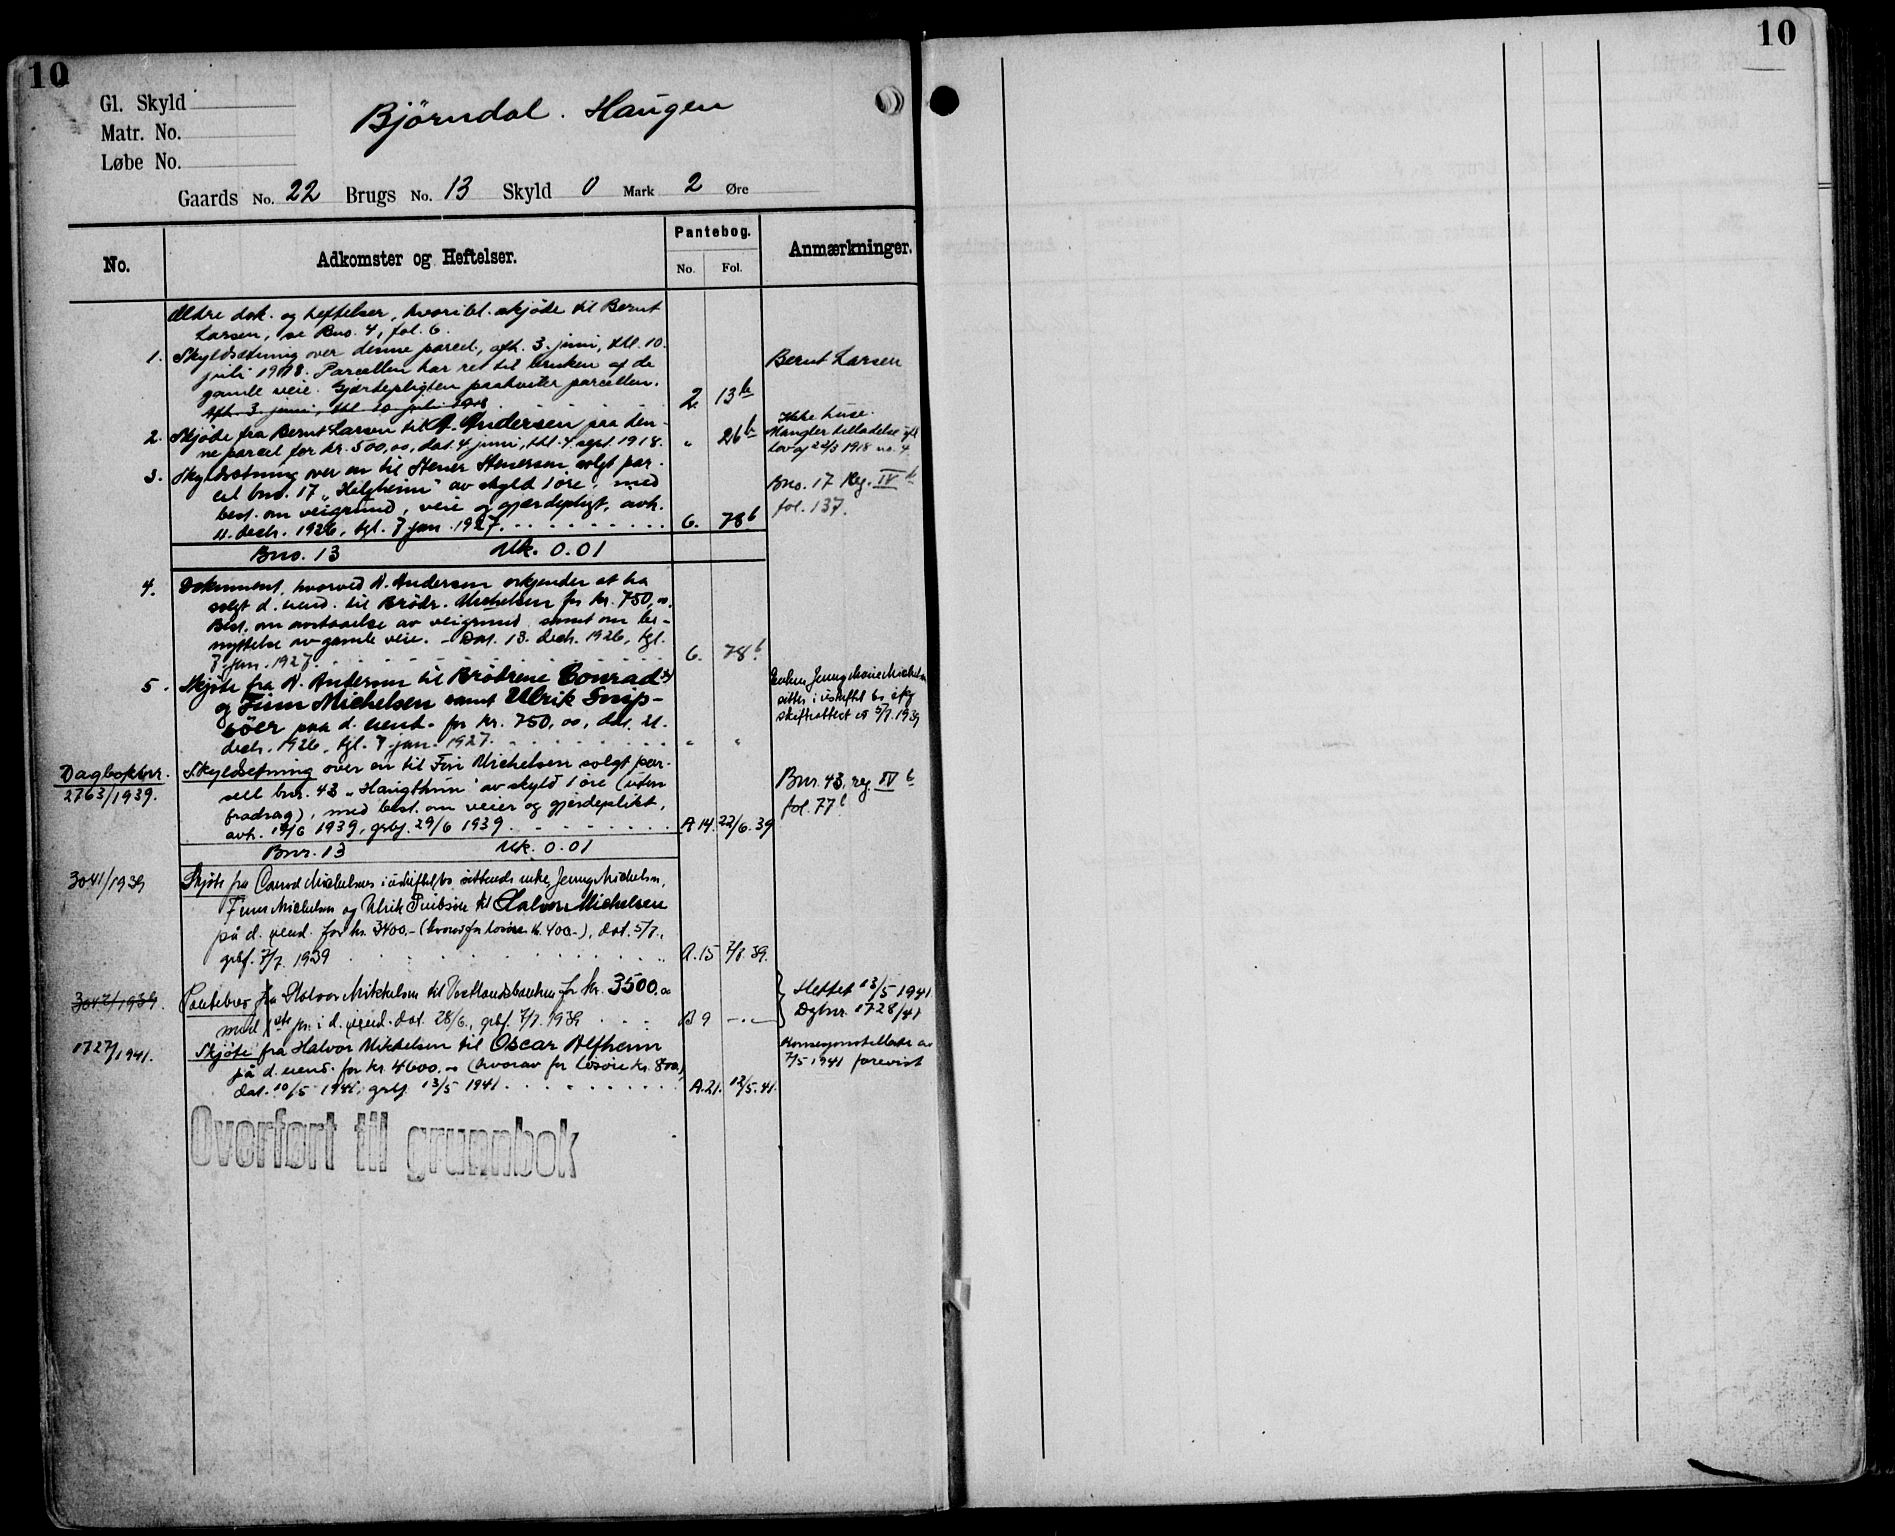 10
10
Gl. Skyld
Matr. No.
Løbe No.
Bjørndal. Haugen
Gaards No. 22 Brugs No. 13 Skyld 0 Mark 2 Øre
No.
Adkomster og Heftelser.
Pantebog.
No. Fol.
Anmærkninger.
Ældre dok. og heftelser, hvoribl. skjøde til Bernt
Larsen, se Bno. 4, fol. 6.
1. Skyldsætning over denne parcel, afh. 3. juni, thl. 10.
juli 1918. Parcellen har ret til bruken af de
gamle veie. Gjærdepligten paahviler parcellen.
Afh. 3. juni, thl. 10 juli 1918
2. 13b
Bernt Larsen
2. Skjøde fra Bernt Larsen til A. Andersen paa den-
ne parcel for kr. 500,00, dat. 4 juni, thl. 4. sept. 1918.
" 26b
Ikke huse.
Mangler tilladelse
lov af 22/3 1918 no. 4
3. Skyldsætning over en til Stener Stenersen solgt par-
cel bno. 17 „Helgheim" av skyld 1 øre; med
best. om veigrund, veie og gjærdepligt, avh.
11. decbr. 1926, tgl. 7 jan. 1927.
6. 78b
Bno. 17 Reg. IV b
fol. 137.
Bno. 13 Mk. 0.01
4. Dokument, hvorved A. Andersen erkjender at ha
solgt d. eiend. til Brødr. Michelsen for kr. 750,00.
Best. om avstaaelse av veigrund samt om be-
nyttelse av gamle veie. - Dat. 13. decbr. 1926, tgl.
7 jan. 1927.
6. 78b
5. Skjøte fra A. Andersen til Brødrene Conrad
og Finn Michelsen samt Ulrik Snip-
söer paa d. eiend. for kr. 750,00, dat. 21.
decbr. 1926, tgl. 7 jan. 1927.
" "
Enken Jenny Marie Michelsen
sitter i uskiftet bo ifg
skifteattest av 5/7. 1939
Dagboknr.
2763/1939.
Skyldsetning over en til Finn Michelsen solgt par-
sell bnr. 43 „Haugthun" av skyld 1 øre (uten
fradrag), med best. om veier og gjerdeplikt,
avh. 19/6 1939, grbf. 29/6 1939.
A 14. 22/6. 39
Bnr. 43, reg. IV b
fol. 77b
Bnr. 13 Mk. 0.01
3041/1939
Skjøte fra Conrad Michelsens i uskiftet bo sittende enke, Jenny Michelsen,
Finn Michelsen og Ulrik Snibsøer til Halvor Michelsen
på d. eiend. for kr. 3400.- (hvorav for løsøre kr. 400.-), dat. 5/7.,
grbf. 7/7. 1939
A. 15 7/7. 39.
3042/1939.
Pantebrev fra Halvor Mikkelsen til Vestlandsbanken for kr. 3500,00
med 1ste pr. i d. eiend. Dat. 28/6., grbf. 7/7. 1939
B 9 -.-
Slettet 13/5 1941
Dgbnr. 1728/41
1727/1941.
Skjøte fra Halvor Mikkelsen til Oscar Alfheim
på d. eiend. for kr. 4600.- (hvorav for løsøre kr. 800)
dat. 10/5 1941, grbf. 13/5 1941
A. 21. 12/5. 41.
Konsesjonstillatelse av
7/5 1941 forevist
Overført til grunnbok